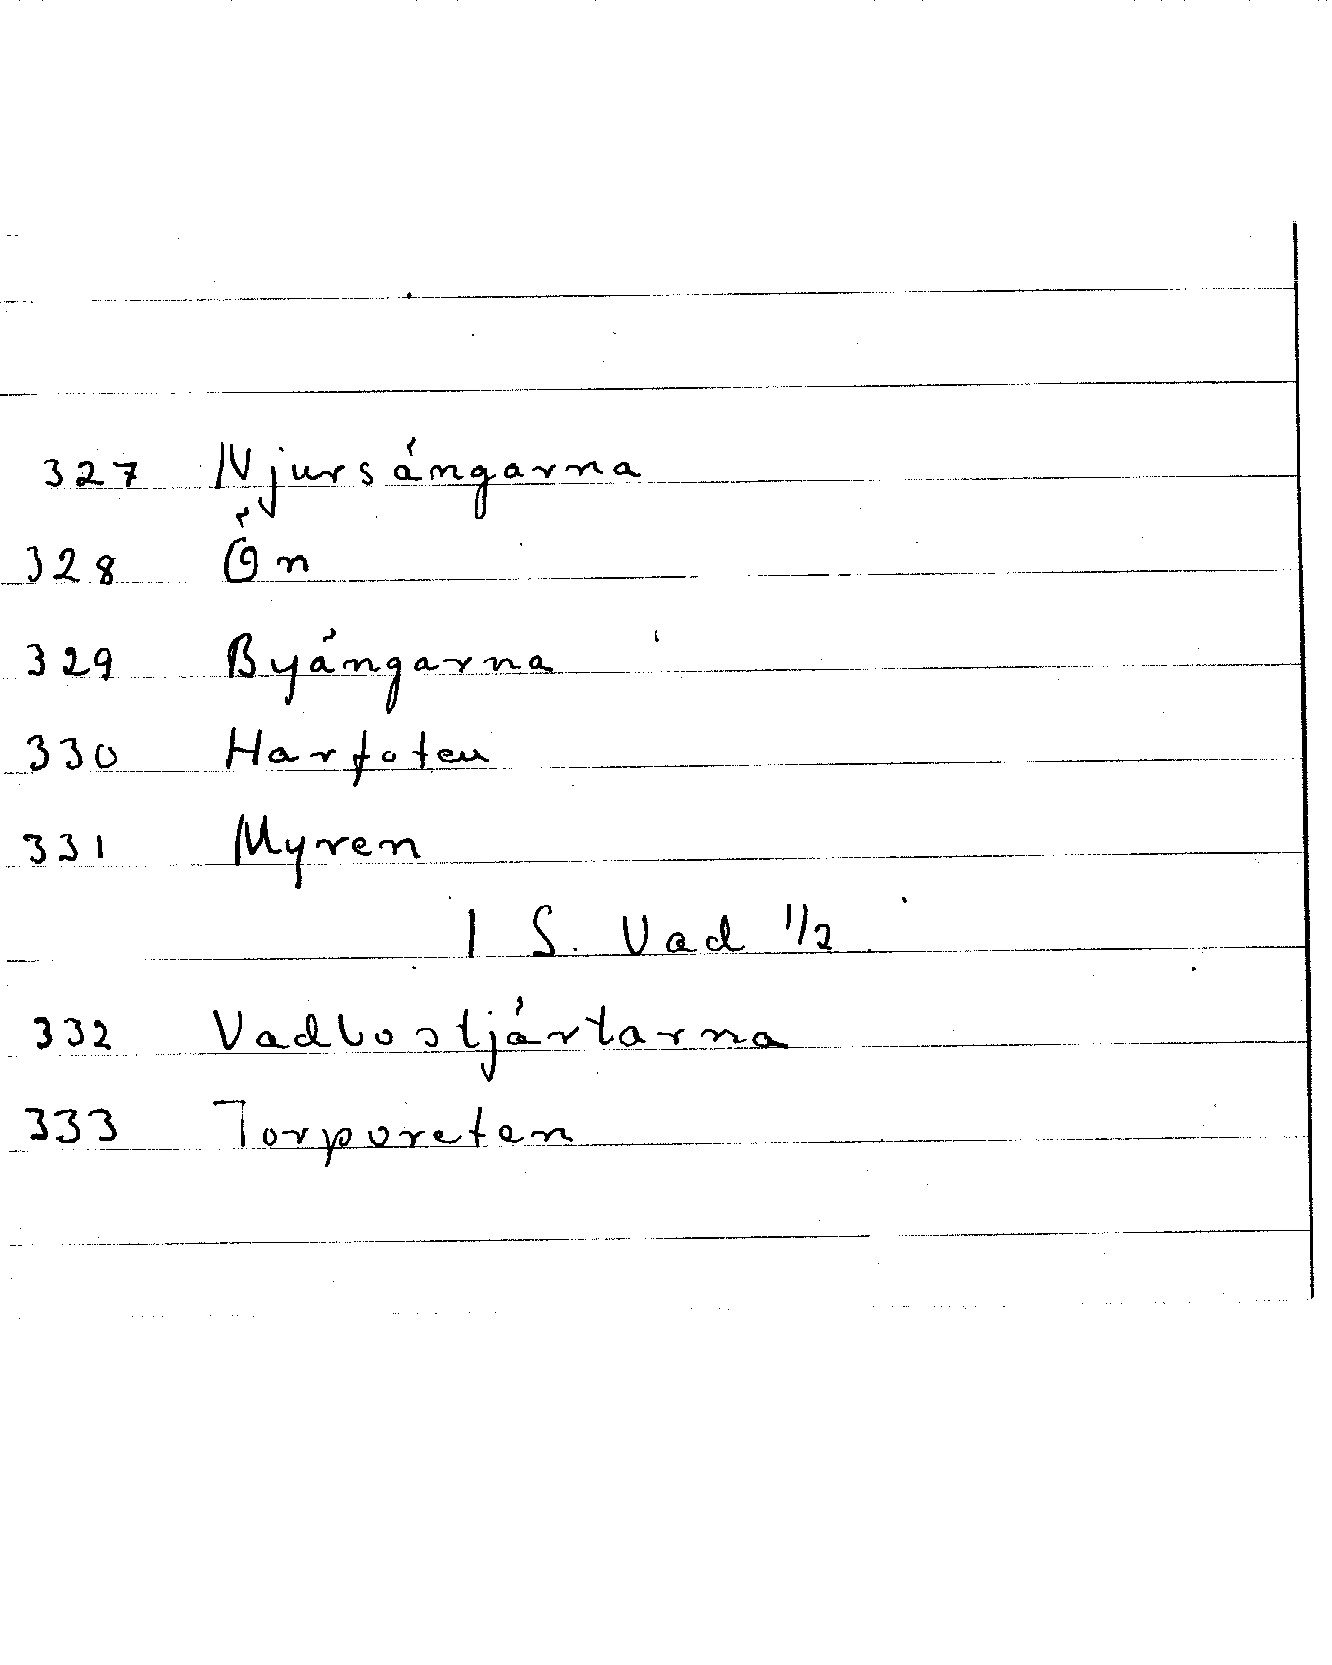 327 Njursängarna
328 Ön
329 Byängarna
330 Harfoten
331 Myren
I S. Vad 1/2
332 Vadbostjärtarna
333 Torpvreten